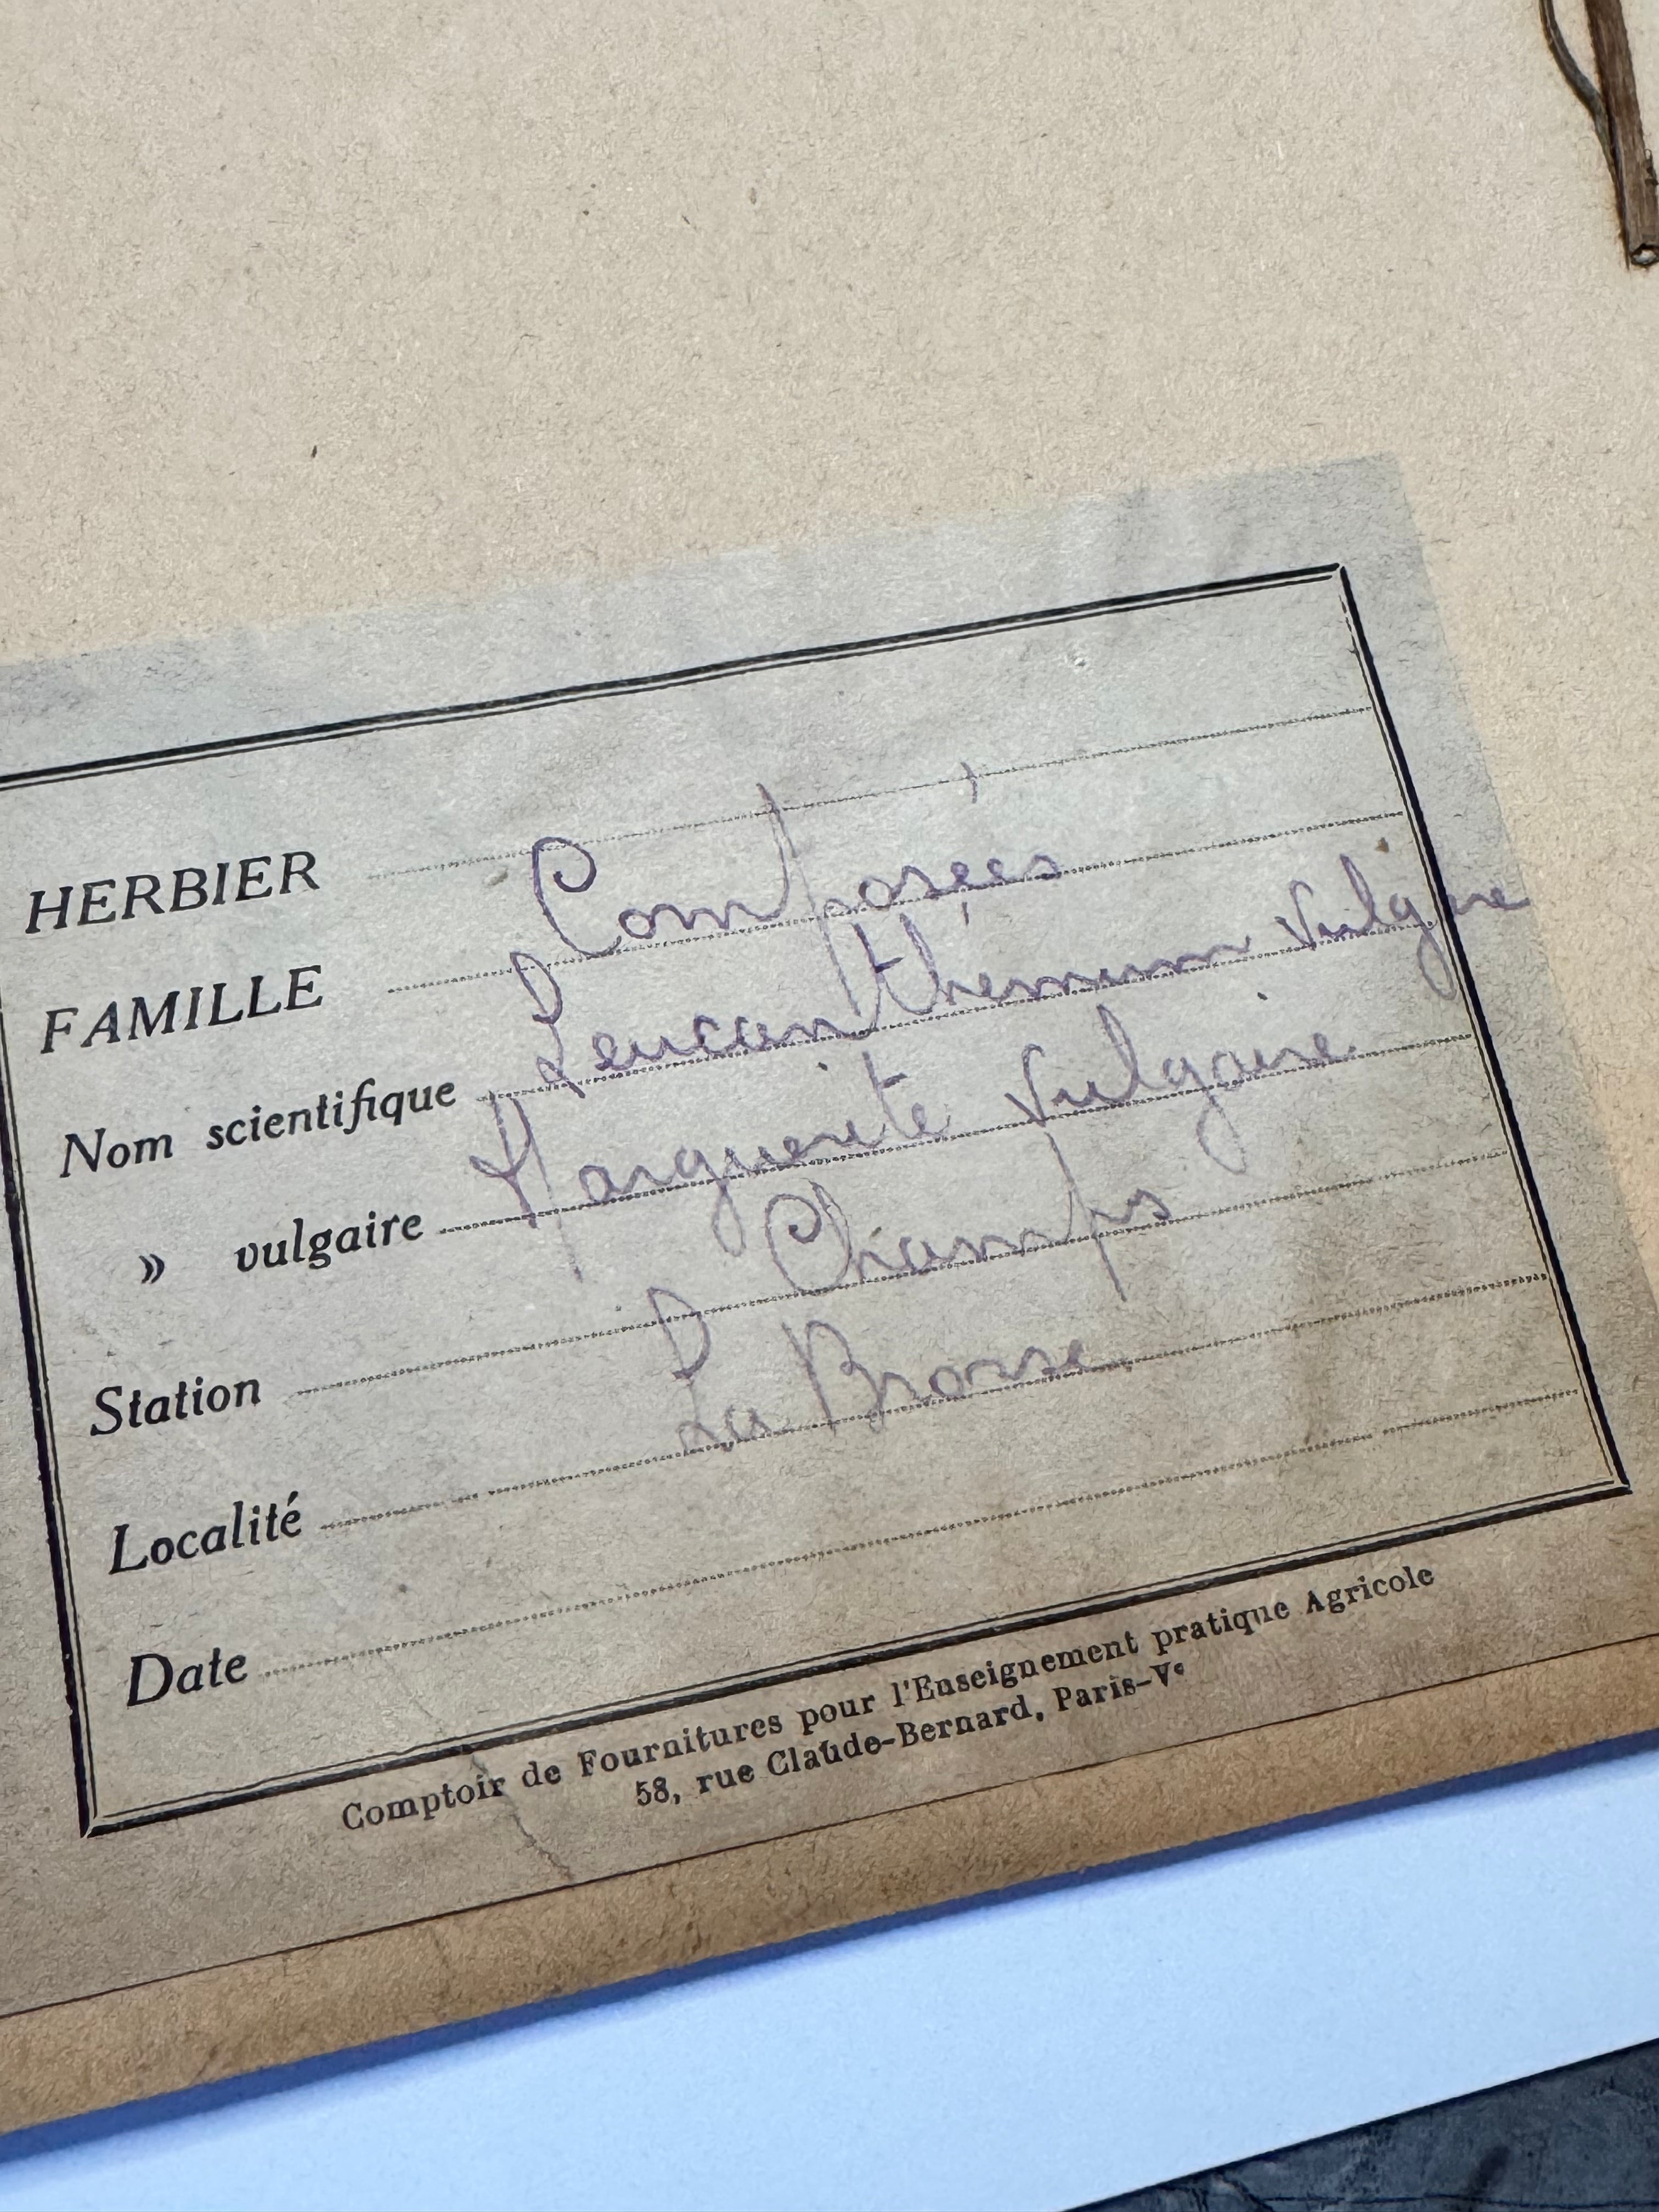 HERBIER
FAMILLE Composées
Nom scientifique Leucanthemum Vulgare
» vulgaire Marguerite Vulgaire
Station Champs
Localité La Brosse
Date
Comptoir de Fournitures pour l'Enseignement pratique Agricole
58, rue Claude-Bernard, Paris-Vᵉ